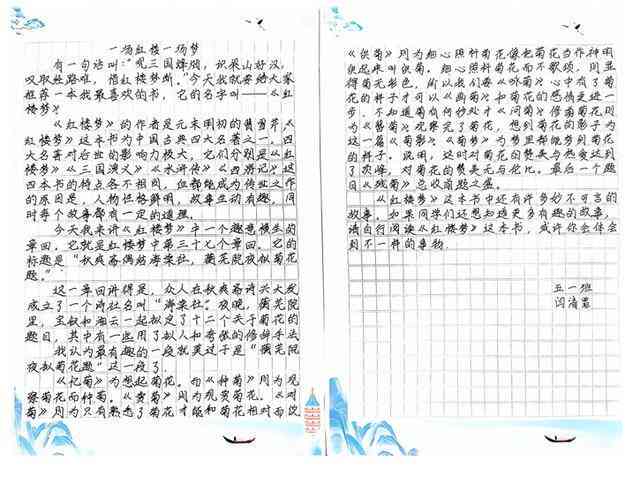 一场红楼一场梦
有一句话叫:"观三国烽烟,识梁山好汉,
叹取经路难,惜红楼梦断。"今天我就要给大家
推荐一本我最喜欢的书,它的名字叫——《红
楼梦》
《红楼梦》的作者是元末明初的曹雪芹,《
红楼梦》这本书为中国古典四大名著之一。四
大名著对后世的影响力极大,它们分别是《红
楼梦》《三国演义》《水浒传》《西游记》这
四本书的特点各不相同,但都能成为传世之作
的原因是,人物性格鲜明,故事生动有趣,同
时每个故事都有一定的道理。
今天我来讲《红楼梦》中一个趣意横生的
章回。它就是红楼梦中第三十七个章回。它的
标题是"秋爽斋偶结海棠社,蘅芜院夜拟菊花
题。"
这一章回讲得是,众人在秋爽斋诗兴大发
成立了一个诗社名叫"海棠社"。夜晚,蘅芜院
里,宝钗和湘云一起拟定了十二个关于菊花的
题目,其中有一些用了拟人和夸张的修辞手法
我认为最有趣的一段就莫过于是"蘅芜院
夜拟菊花题"这一段了。
《忆菊》为想起菊花。而《种菊》则为观
察菊花而种菊。《访菊》则为观赏菊花。《对
菊》则为只有熟悉了菊花才能和菊花相对而说
《供菊》则为细心照料菊花像把菊花当作神明
供起来叫供菊。细心照料菊花而不歌颂,则显
得菊无彩色,所以我们要《咏菊》心中有了菊
花的样子才可以《画菊》和菊花的感情更进一
步,不知道菊有何妙处才《问菊》修剪菊花则
为《簪菊》观察完了菊花,想到菊花的影子为
这一篇《菊影》。《菊梦》为梦里都能梦到菊花
的样子。说明,这时对菊花的赞美与热爱达到
了顶峰,对菊花的赞美无与伦比。最后一个题
目《残菊》总收前题之盛。
《红楼梦》这本书中还有许多妙不可言的
故事,如果同学们还想知道更多有趣的故事,
请自行阅读《红楼梦》这本书,或许你会体会
到不一样的事物.
五一班